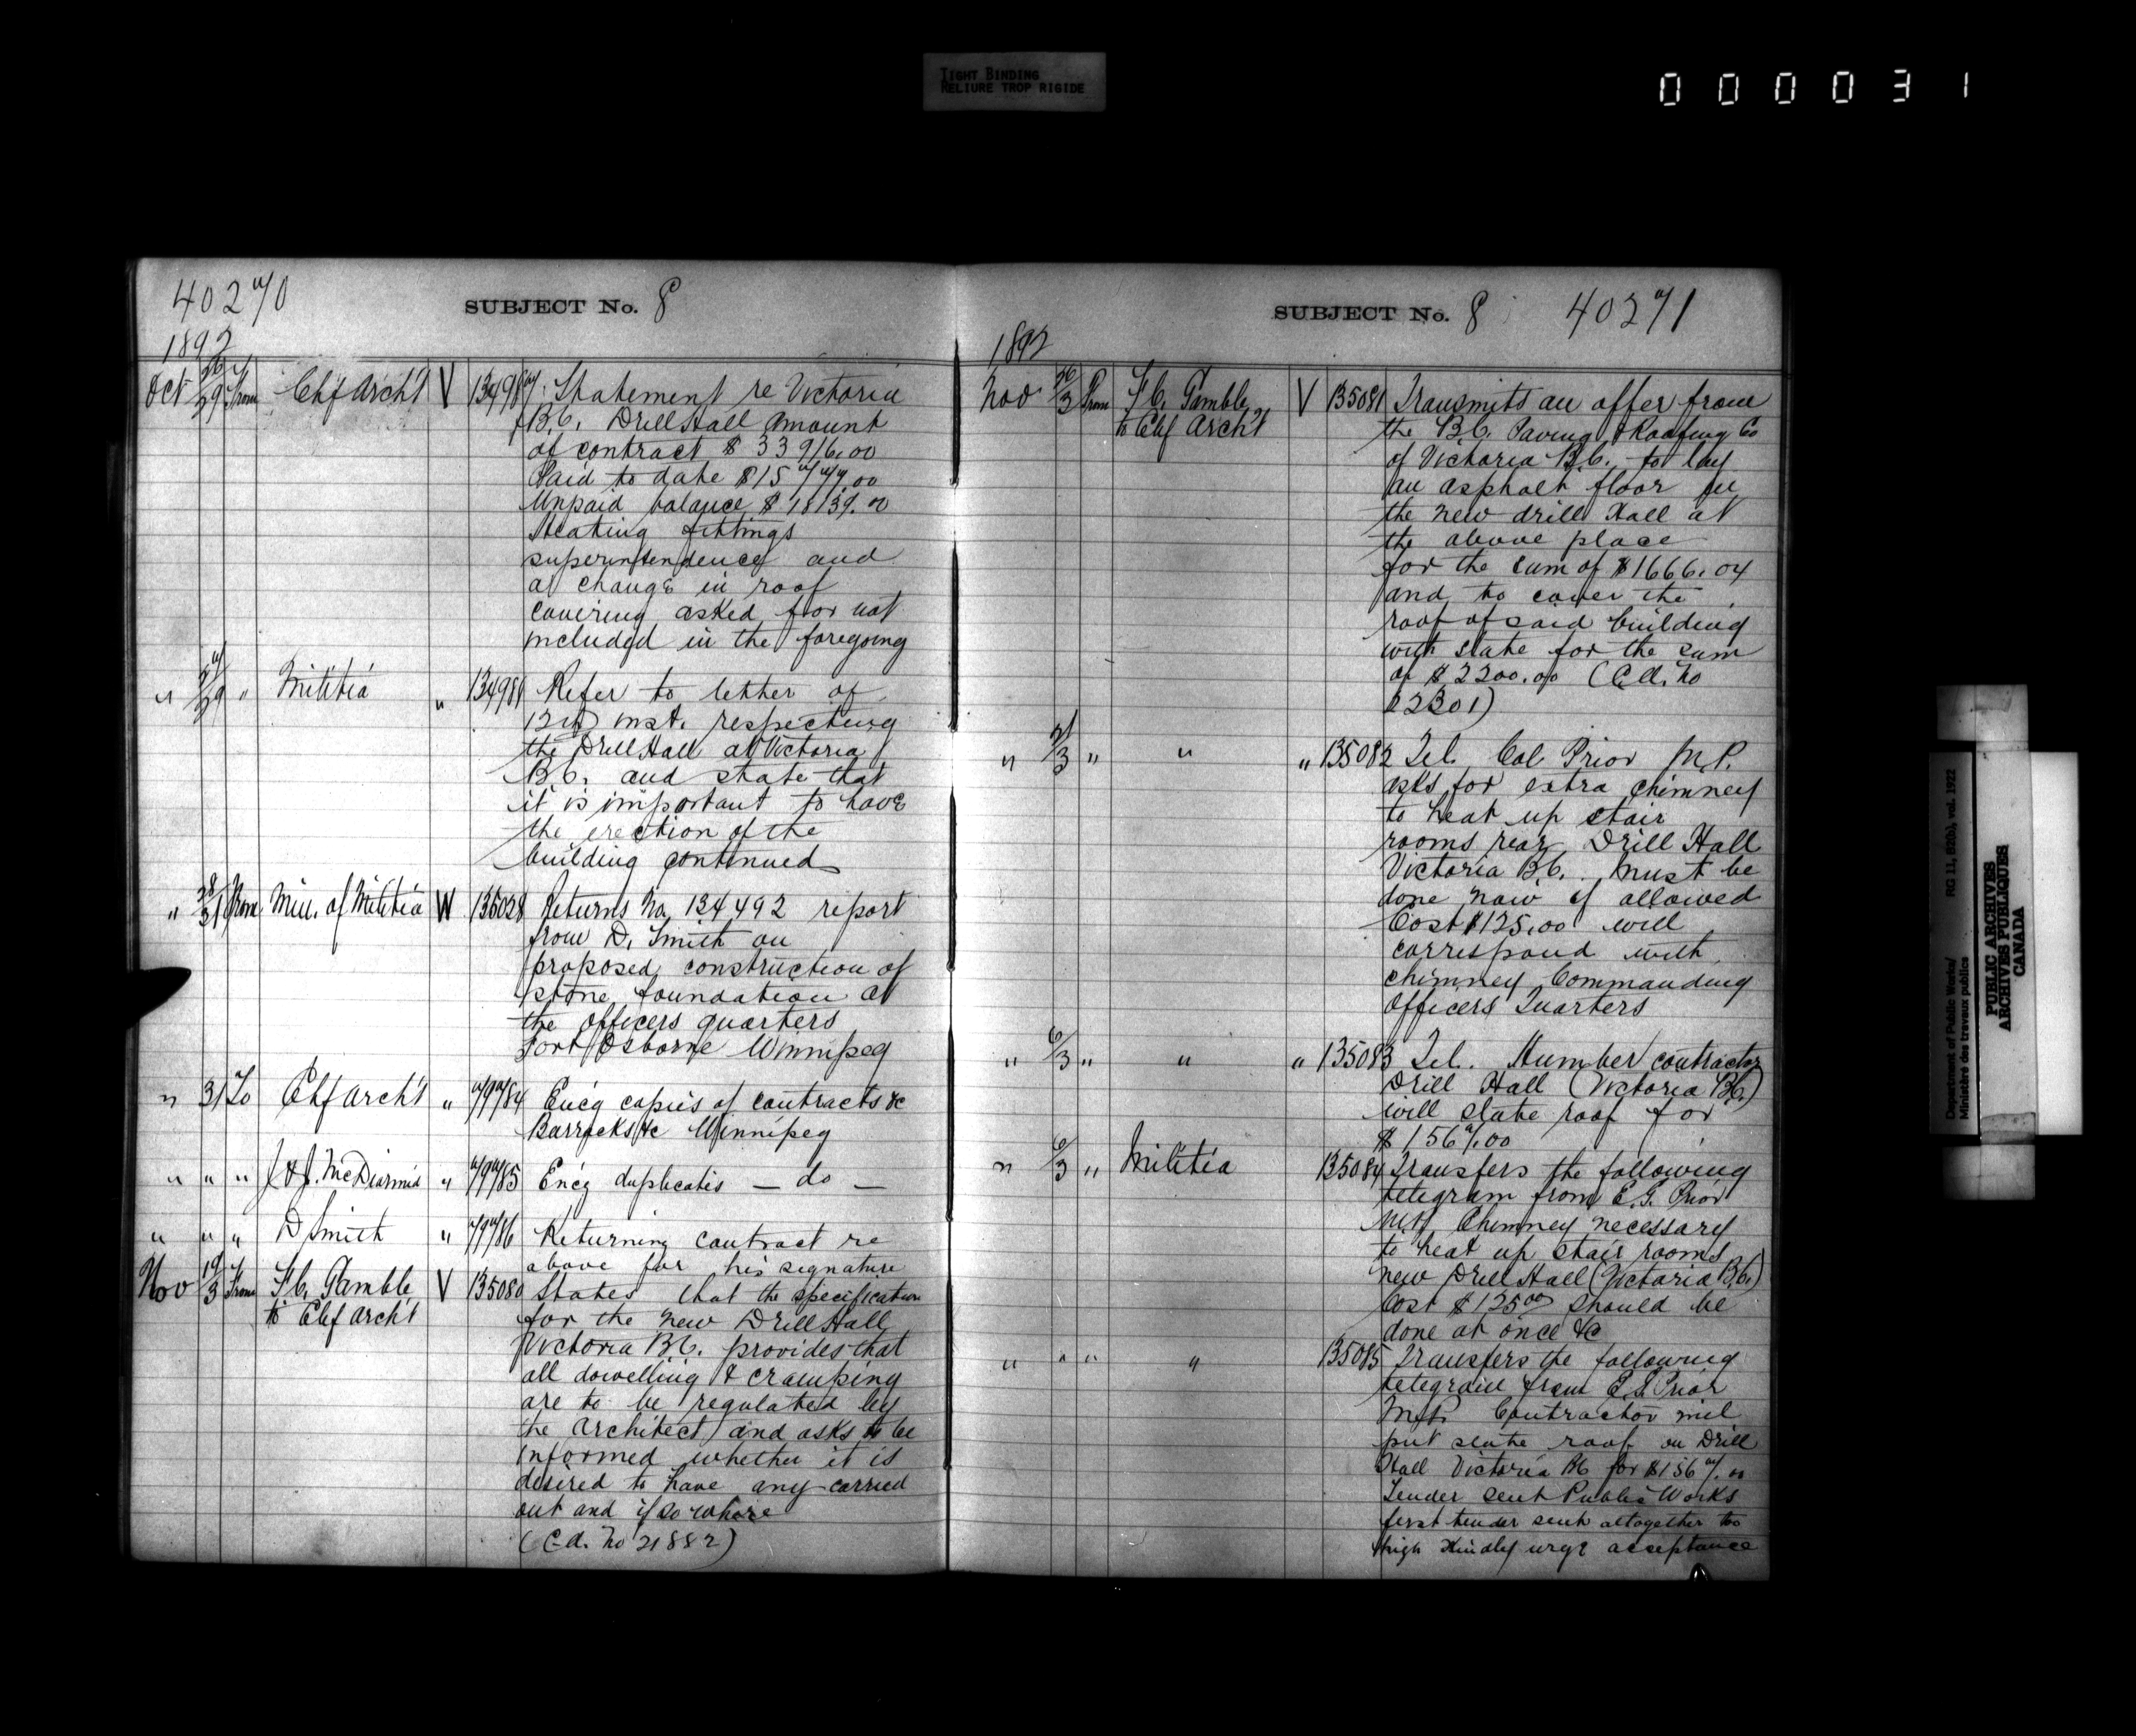 TIGHT BINDING
RELIURE TROP RIGIDE
000031
40270
SUBJECT No. 8
1892
Oct 26/29 From Chf Arch't V 134987 Statement re Victoria
B.C. Drill Hall amount
of contract $33916.00
Paid to date $15777.00
Unpaid balance $18139.00
Heating fittings
superintendence and
a change in roof
covering asked for not
included in the foregoing
" 27/29 " Militia " 134989 Refer to letter of
12th inst. respecting
the Drill Hall at Victoria
B.C. and state that
it is important to have
the erection of the
building continued
" 28/31 From Min. of Militia W 135028 Returns No 134492 report
from D. Smith on
proposed construction of
stone foundation at
the officers quarters
Fort Osborne Winnipeg
" 31 To Chf Arch't " 79784 Enc'g copies of contracts &c
Barracks &c Winnipeg
" " " J & J. McDiarmid " 79785 Enc'g duplicates — do —
" " " D Smith " 79786 Returning contract re
above for his signature
Nov 19/3 From F.C. Gamble V 135080 States that the specification
to Chf Arch't for the new Drill Hall
Victoria B.C. provides that
all dowelling & cramping
are to be regulated by
the Architect and asks to be
informed whether it is
desired to have any carried
out and if so where
(C.A. No 21882)
SUBJECT No. 8 40271
1892
Nov 26/3 From F.C. Gamble V 135081 Transmits an offer from
to Chf Arch't the B.C. Paving & Roofing Co
of Victoria B.C. to lay
an asphalt floor in
the new drill Hall at
the above place
for the sum of $1666.04
and to cover the
roof of said building
with slate for the sum
of $2200.00 (C.A. No
22301)
" 31/3 " " " 135082 Tel. Col Prior M.P.
asks for extra chimney
to heat up stair
rooms rear Drill Hall
Victoria B.C. Must be
done now if allowed
Cost $125.00 will
correspond with
chimney Commanding
Officers Quarters
" 6/3 " " " 135083 Tel. Humber contractor
Drill Hall (Victoria B.C.)
will slate roof for
$1567.00
" 6/3 " Militia 135084 Transfers the following
telegram from E.G. Prior
M.P. Chimney necessary
to heat up stair rooms
new Drill Hall (Victoria B.C.)
Cost $125.00 should be
done at once &c
" " " " 135085 Transfers the following
telegram from E.G. Prior
M.P. Contractor will
put slate roof on Drill
Hall Victoria BC for $1567.00
Tender sent Public Works
first tender sent altogether too
high Kindly urge acceptance
Department of Public Works/ RG 11, B2(b), vol. 1922
Ministère des travaux publics
PUBLIC ARCHIVES
ARCHIVES PUBLIQUES
CANADA